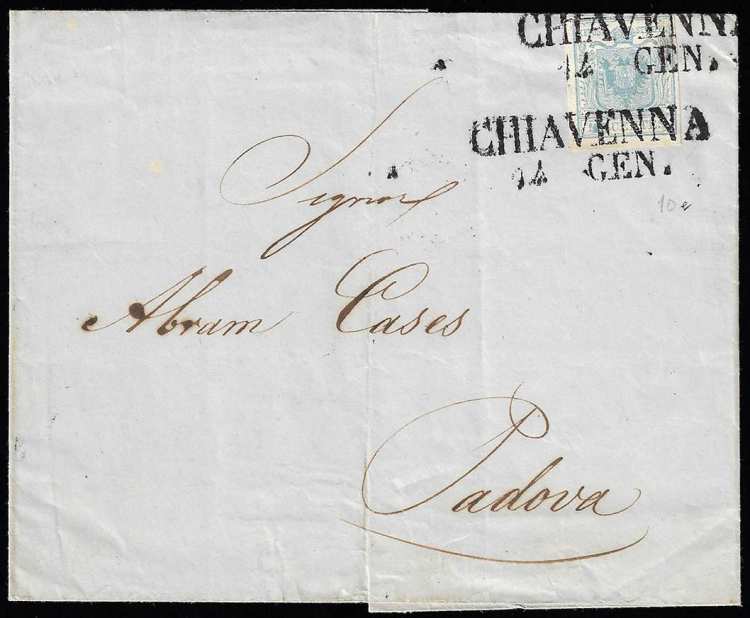 CHIAVENNA
GEN.
CHIAVENNA
GEN.
Signor
Abram Cases
Padova
10e